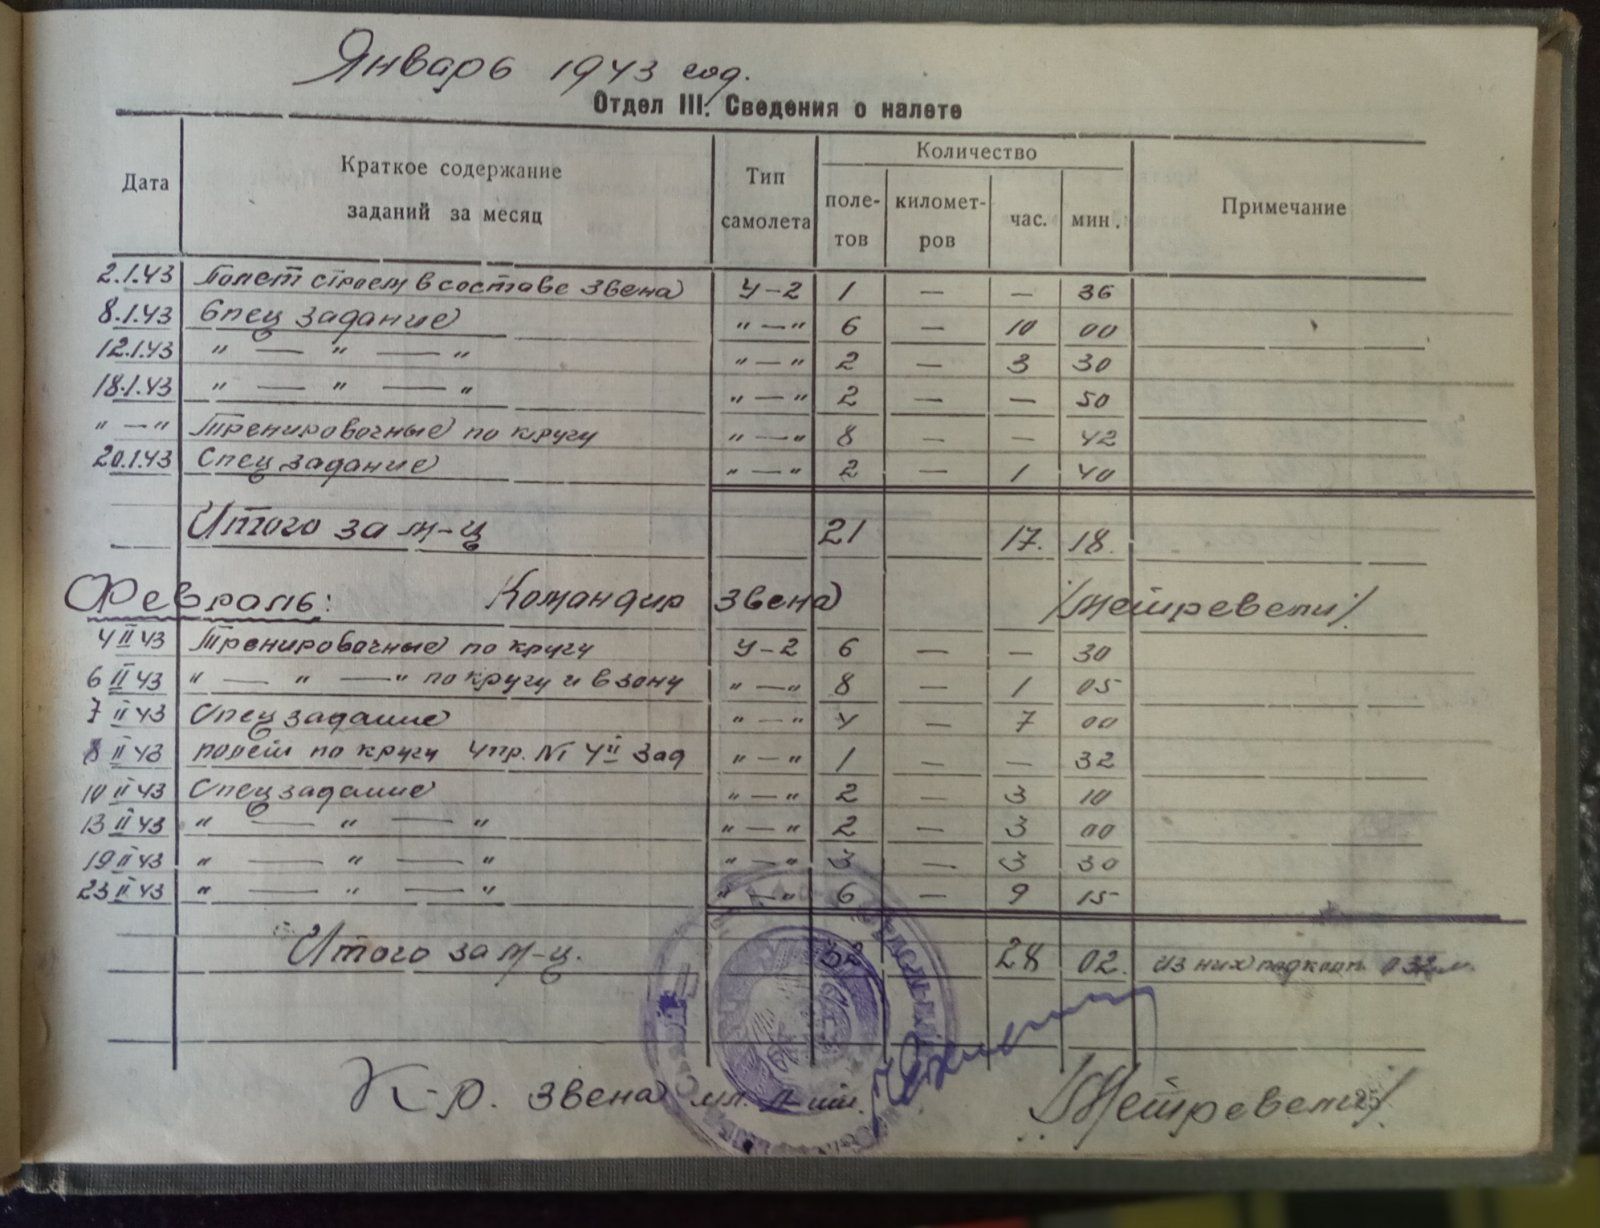 Январь 1943 год.
Отдел III. Сведения о налете
Дата Краткое содержание заданий за месяц Тип самолета Количество Примечание
поле-тов километ-ров час. мин.
2.1.43 Полет строем в составе звена У-2 1 — — 36
8.1.43 Спец задание " — " 6 — 10 00
12.1.43 " — " — " " — " 2 — 3 30
18.1.43 " — " — " " — " 2 — — 50
" — " Тренировочные по кругу " — " 8 — — 42
20.1.43 Спец задание " — " 2 — 1 40
Итого за м-ц 21 17. 18.
Февраль: Командир звена /Метревели/.
4 II 43 Тренировочные по кругу У-2 6 — — 30
6 II 43 " — " — " по кругу и в зону " — " 8 — 1 05
7 II 43 Спец задание " — " 4 — 7 00
8 II 43 полет по кругу Упр. № 4 II зад " — " 1 — — 32
10 II 43 Спец задание " — " 2 — 3 10
13 II 43 " — " — " " — " 2 — 3 00
19 II 43 " — " — " " — " 3 — 3 30
23 II 43 " — " — " " — " 6 — 9 15
Итого за м-ц. 32 28 02. из них под колп. 0 32 м.
К-р. звена мл. л-т /Метревели/